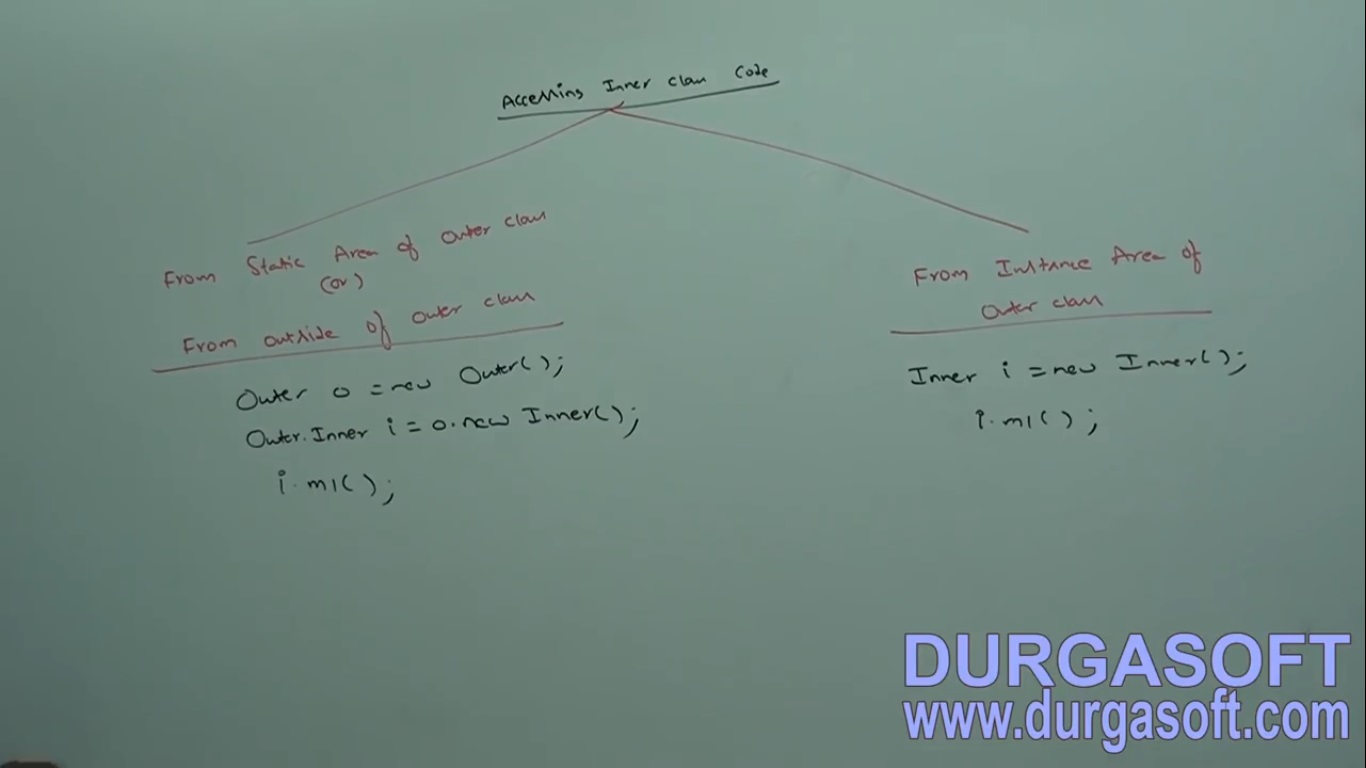 Accessing Inner class Code
From Static Area of Outer class
(or)
From outside of Outer class
Outer o = new Outer();
Outer.Inner i = o.new Inner();
i.m1();
From Instance Area of
Outer class
Inner i = new Inner();
i.m1();
DURGASOFT
www.durgasoft.com